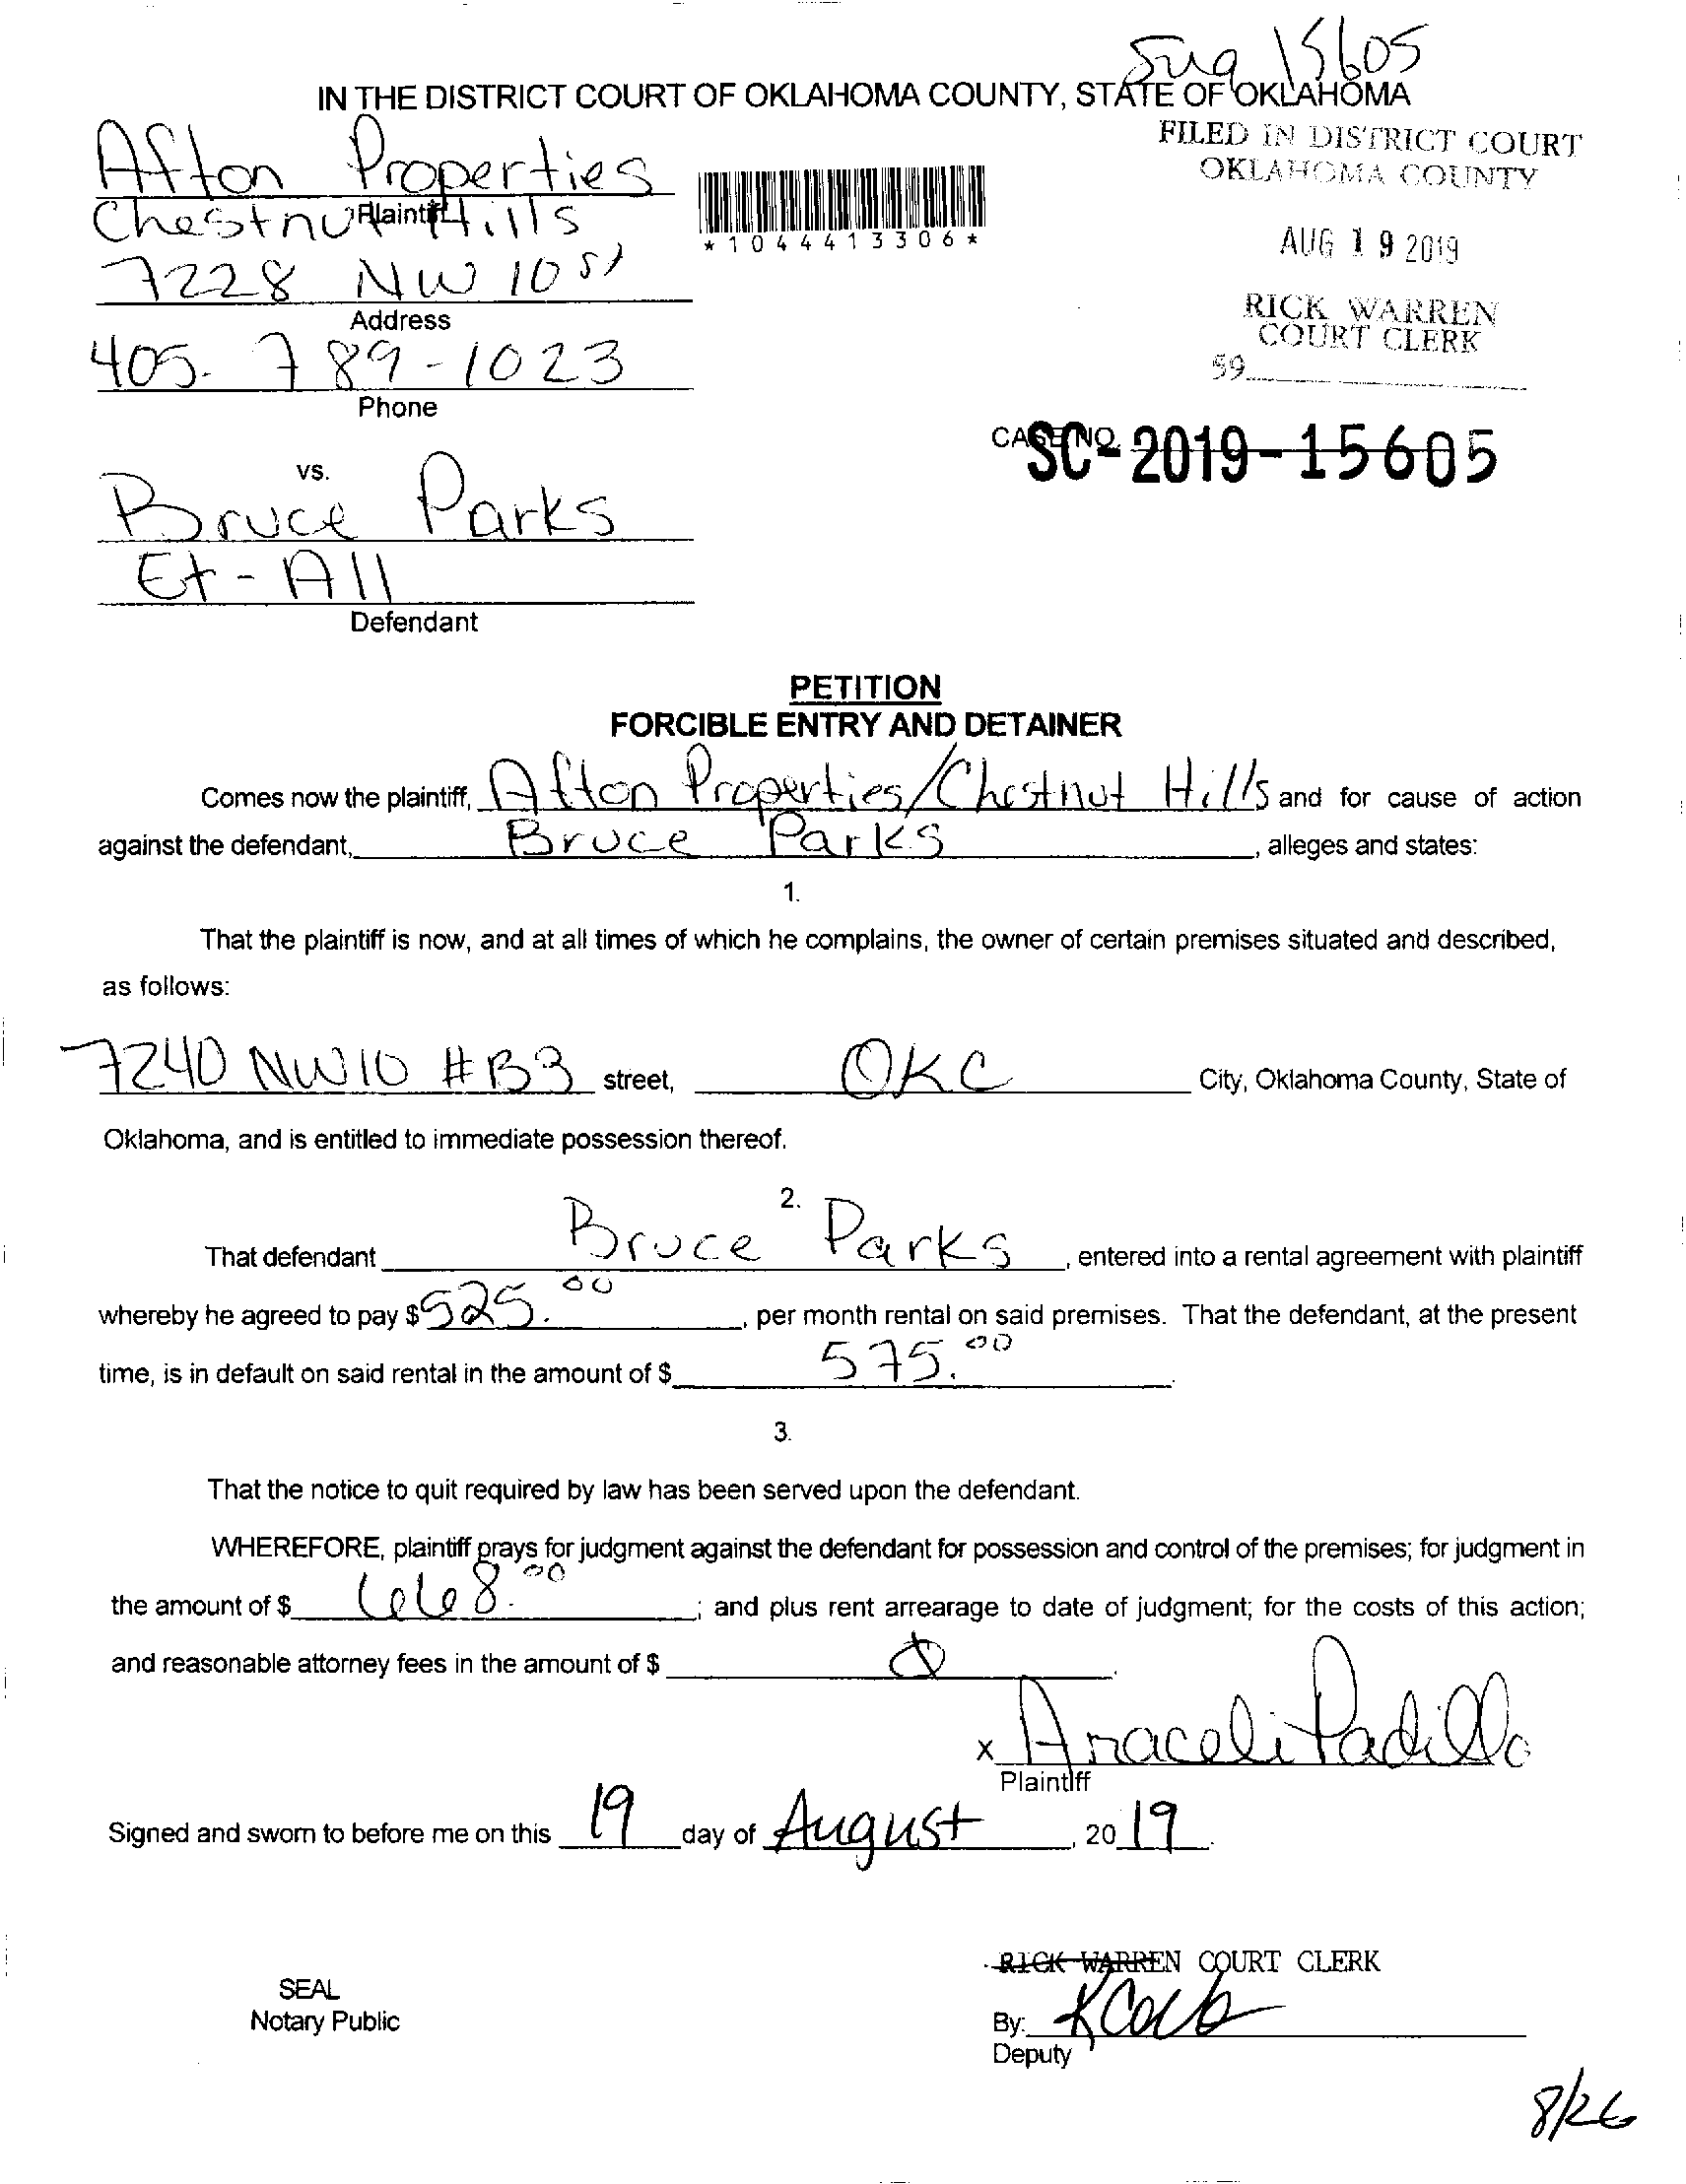 15605
IN THE DISTRICT COURT OF OKLAHOMA COUNTY, STATE OF OKLAHOMA
FILED IN DISTRICT COURT
OKLAHOMA COUNTY
AUG 19 2019
RICK WARREN
COURT CLERK
59
Afton Properties
Chestnut Hills
Plaintiff
*1044413306*
7228 NW 10 st
Address
405-789-1023
Phone
CASE NO. SC-2019-15605
vs.
Bruce Parks
Et-All
Defendant
PETITION
FORCIBLE ENTRY AND DETAINER
Comes now the plaintiff, Afton Properties/Chestnut Hills and for cause of action
against the defendant, Bruce Parks, alleges and states:
1.
That the plaintiff is now, and at all times of which he complains, the owner of certain premises situated and described,
as follows:
7240 NW 10 #B3 street, OKC City, Oklahoma County, State of
Oklahoma, and is entitled to immediate possession thereof.
2.
That defendant Bruce Parks, entered into a rental agreement with plaintiff
whereby he agreed to pay $525.00, per month rental on said premises. That the defendant, at the present
time, is in default on said rental in the amount of $ 575.00.
3.
That the notice to quit required by law has been served upon the defendant.
WHEREFORE, plaintiff prays for judgment against the defendant for possession and control of the premises; for judgment in
the amount of $ 668.00; and plus rent arrearage to date of judgment; for the costs of this action;
and reasonable attorney fees in the amount of $ 0.
x Araceli Padilla
Plaintiff
Signed and sworn to before me on this 19 day of August, 2019.
RICK WARREN COURT CLERK
SEAL
Notary Public
By:
Deputy
8/26